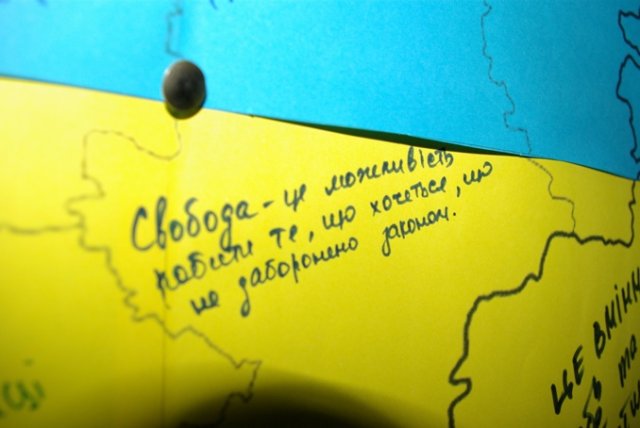 Свобода - це можливість
робити те, що хочеться, що
не заборонено законом.
ЦЕ ВМІНН
та